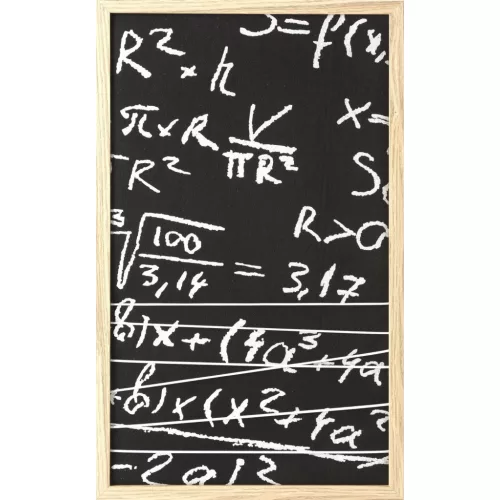 S = f(x,
R² × h
π × R V/πR² x =
- R² S
R > 0
³√100/3,14 = 3,17
b)x + (4a³ + 4a
+ b)x (x² + 4a²
- 2a)²